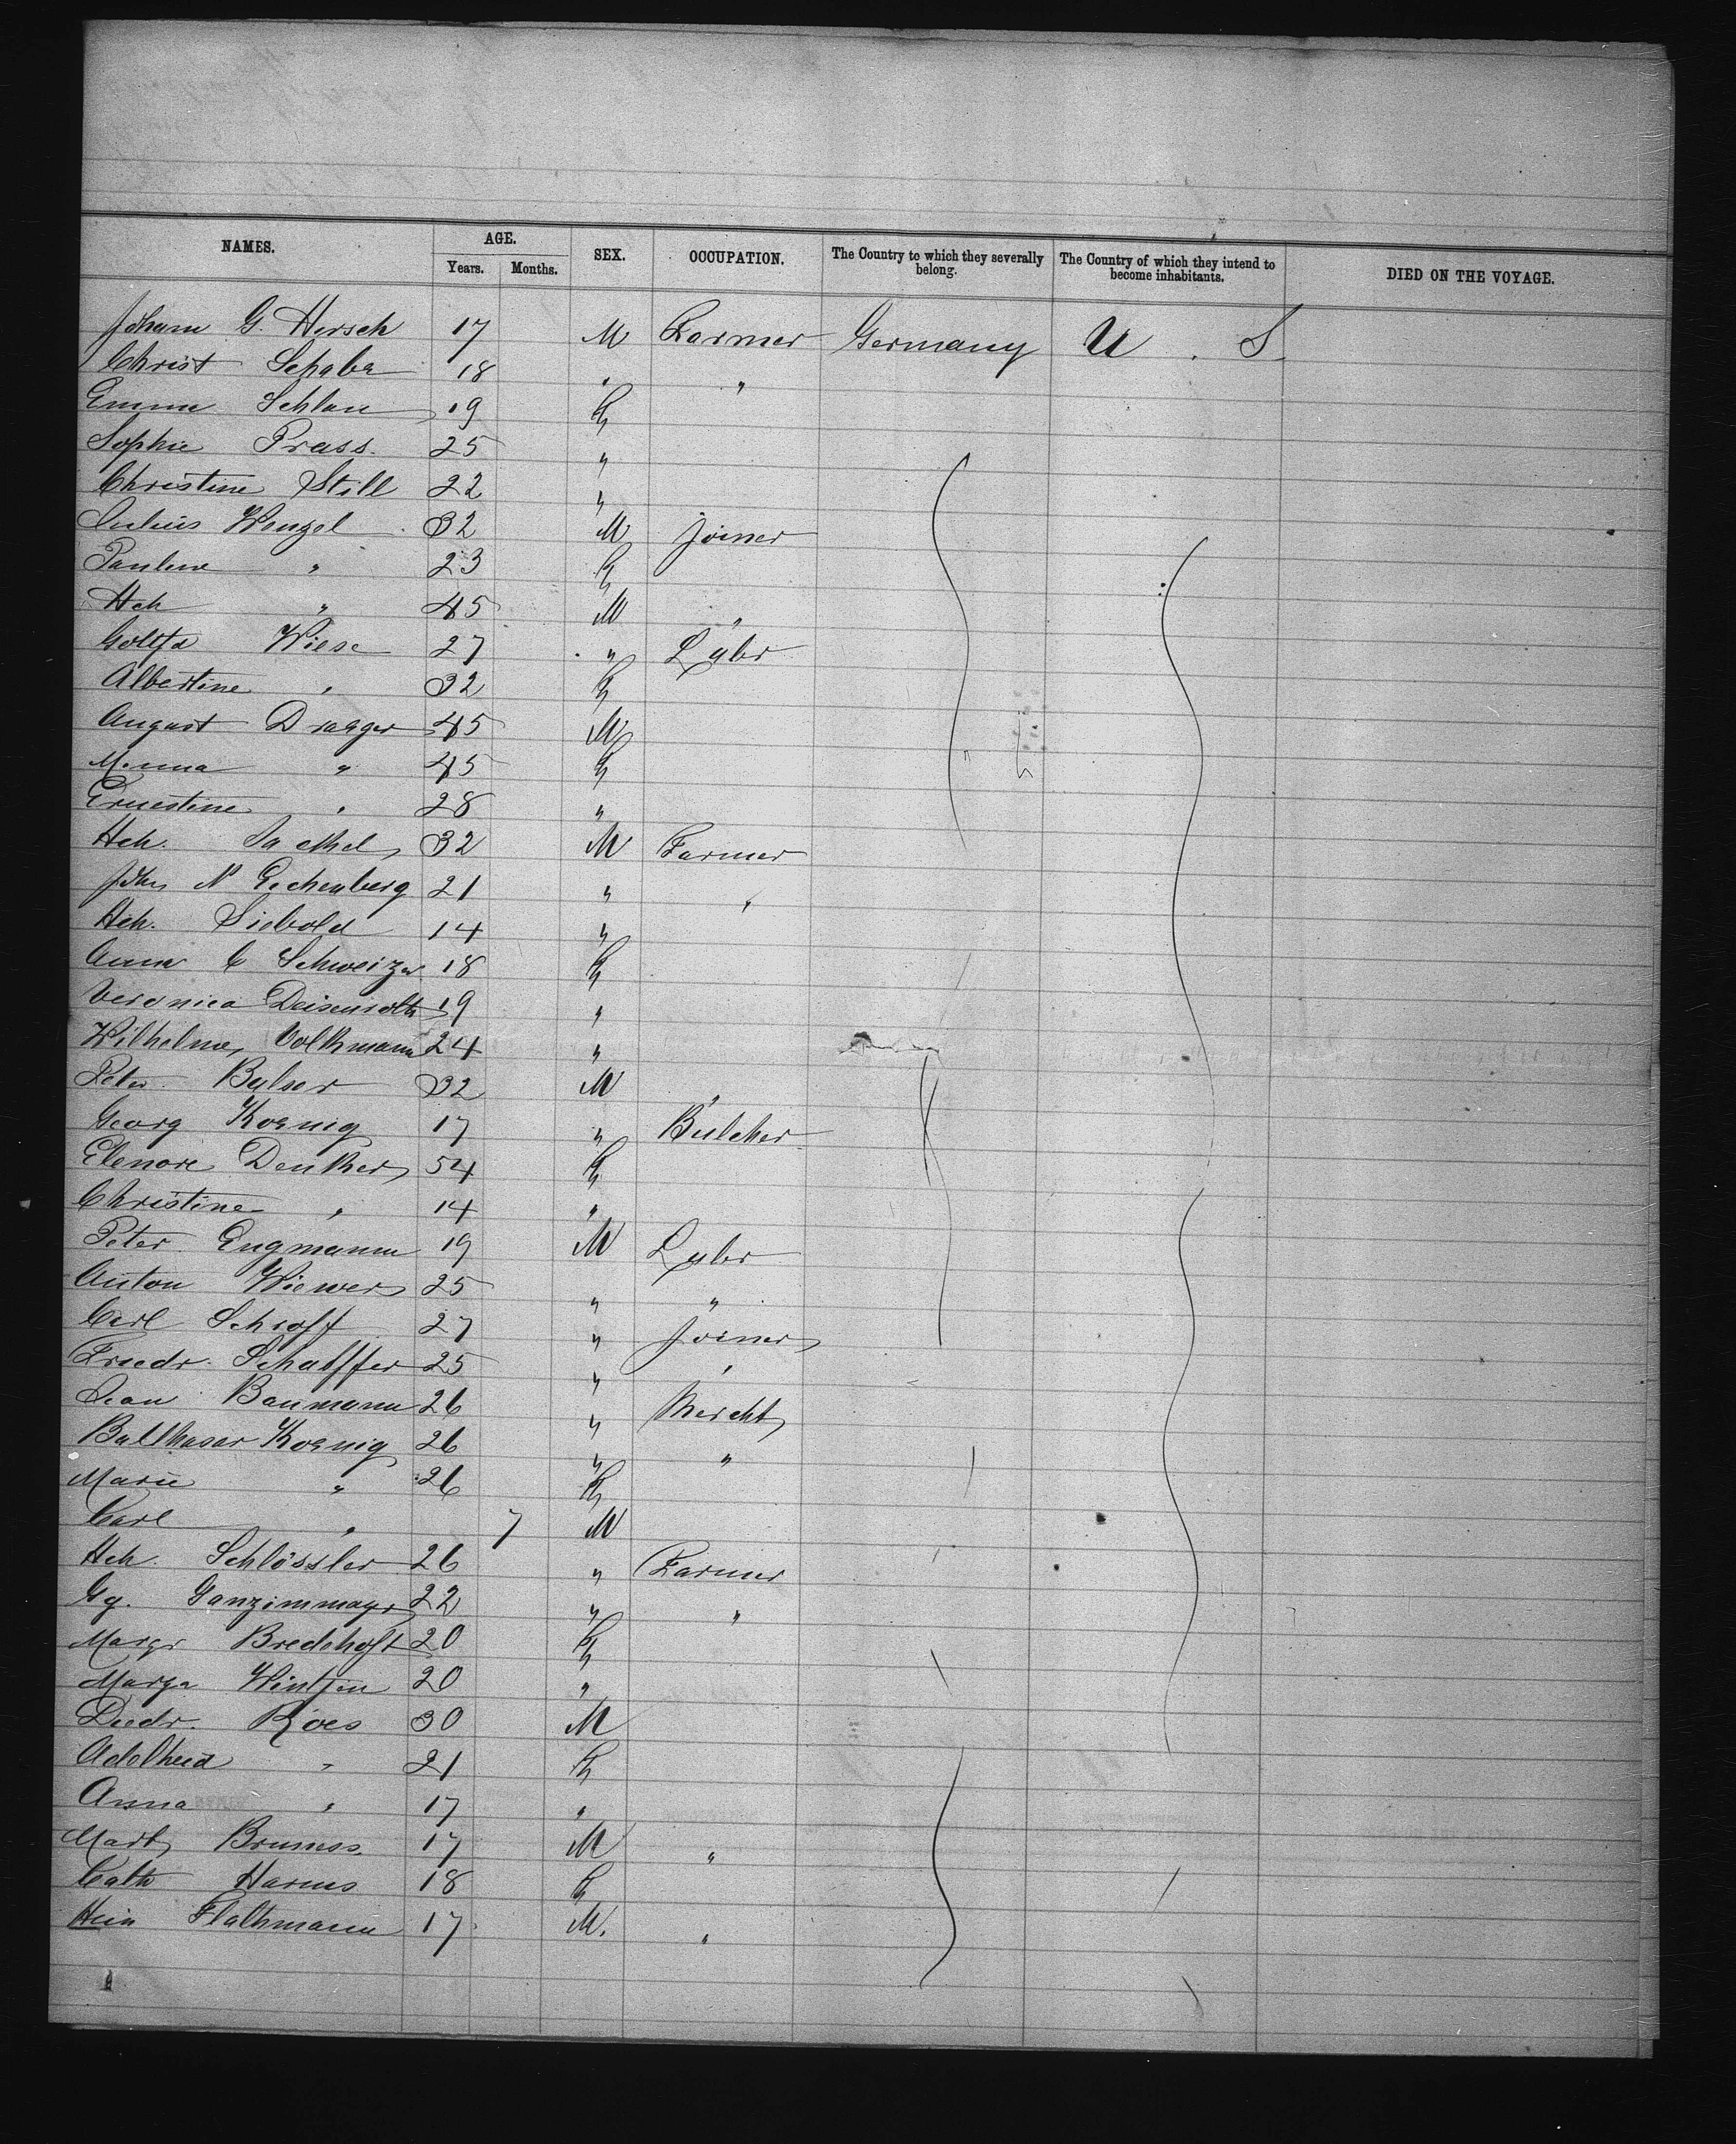 NAMES. AGE. SEX. OCCUPATION. The Country to which they severally belong. The Country of which they intend to become inhabitants. DIED ON THE VOYAGE.
Years. Months.
Johann G. Hersch 17 M Farmer Germany U. S.
Christ Schabe 18 " "
Emma Schlau 19 F
Sophie Prass. 25 "
Christine Still 22 "
Julius Wenzel 32 M Joiner
Pauline " 23 F
Hch " 45 M "
Gottfd Wiese 27 " Labr
Albertine " 32 F
August Draeger 45 M
Minna " 45 F
Ernestine " 28 "
Hch. 32 M Farmer
Johs N Eschenberg 21 " "
Hch. Siebold 14 "
Anna C Schweizer 18 F
Veronica Deisenroth 19 "
Wilhelme Volkmann 24 "
Peter Balser 32 M "
Georg Koenig 17 " Butcher
Elenore Denker 54 F
Christine " 14 "
Peter Engmann 19 M Labr
Anton Wiewer 25 " "
Carl Schroff 27 " Joiner
Friedr. Schaffer 25 " "
Jean Baumann 26 " Mercht
Balthasar Koenig 26 " "
Marie " 26 F
Carl " 7 M
Hch. Schlössler 26 " Farmer
Gg. Ganzimmayr 22 " "
Margr Bredehoft 20 F
Marga Wintjen 20 "
Diedr. Roes 30 M
Adelheid " 21 F
Anna " 17 "
Mart Brumss. 17 M "
Cath Harms 18 F
Hein Flathmann 17 M. "